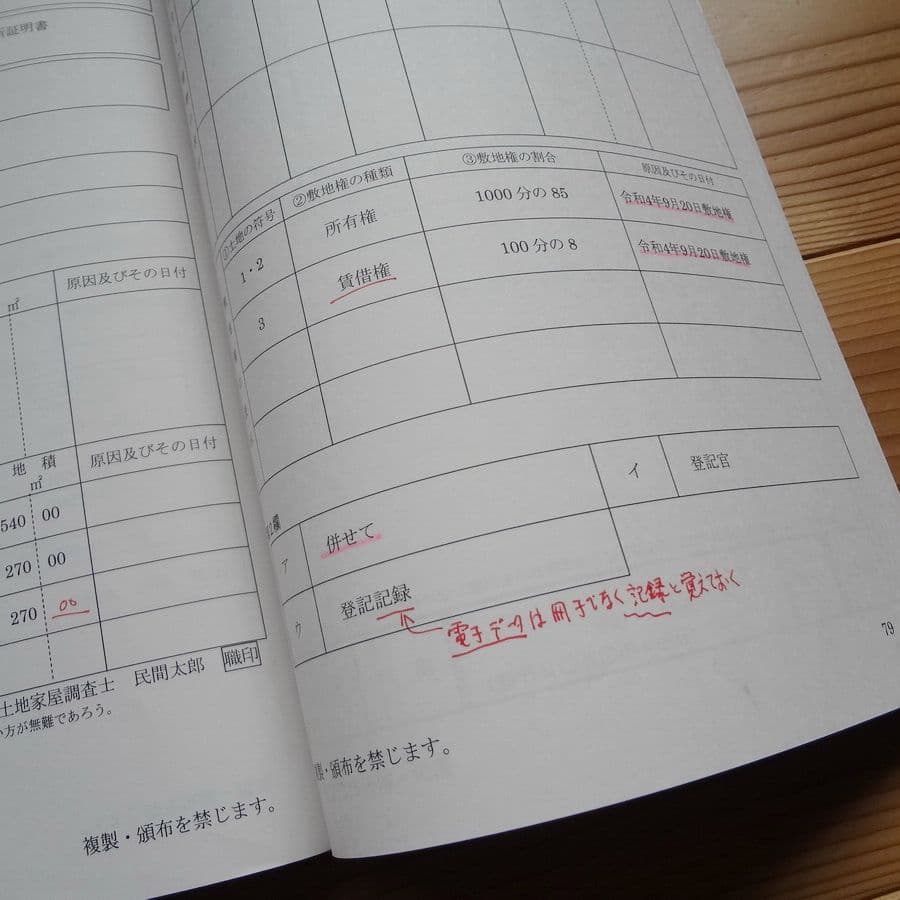 所証明書
原因及びその日付
㎡
地積 原因及びその日付
㎡
540 00
270 00
270 00
土地家屋調査士 民間太郎 職印
い方が無難であろう。
複製・頒布を禁じます。
①土地の符号 ②敷地権の種類 ③敷地権の割合 原因及びその日付
1・2 所有権 1000分の85 令和4年9月20日敷地権
3 賃借権 100分の8 令和4年9月20日敷地権
欄
ア 併せて イ 登記官
ウ 登記記録
電子データは冊子でなく記録と覚えておく
79
製・頒布を禁じます。